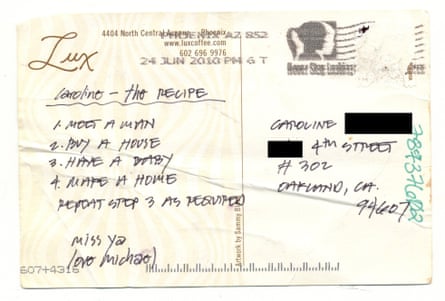 Lux
4404 North Central Phoenix
www.luxcoffee.com
602 696 9976
PHOENIX AZ 852
24 JUN 2010 PM 6 T
Caroline – the RECIPE
1. MEET A MAN
2. BUY A HOUSE
3. HAVE A BABY
4. MAKE A HOME
REPEAT STEP 3 AS REQUIRED
miss ya
love michael
CAROLINE
4TH STREET
# 302
OAKLAND, CA.
94607
Artwork by Sammy